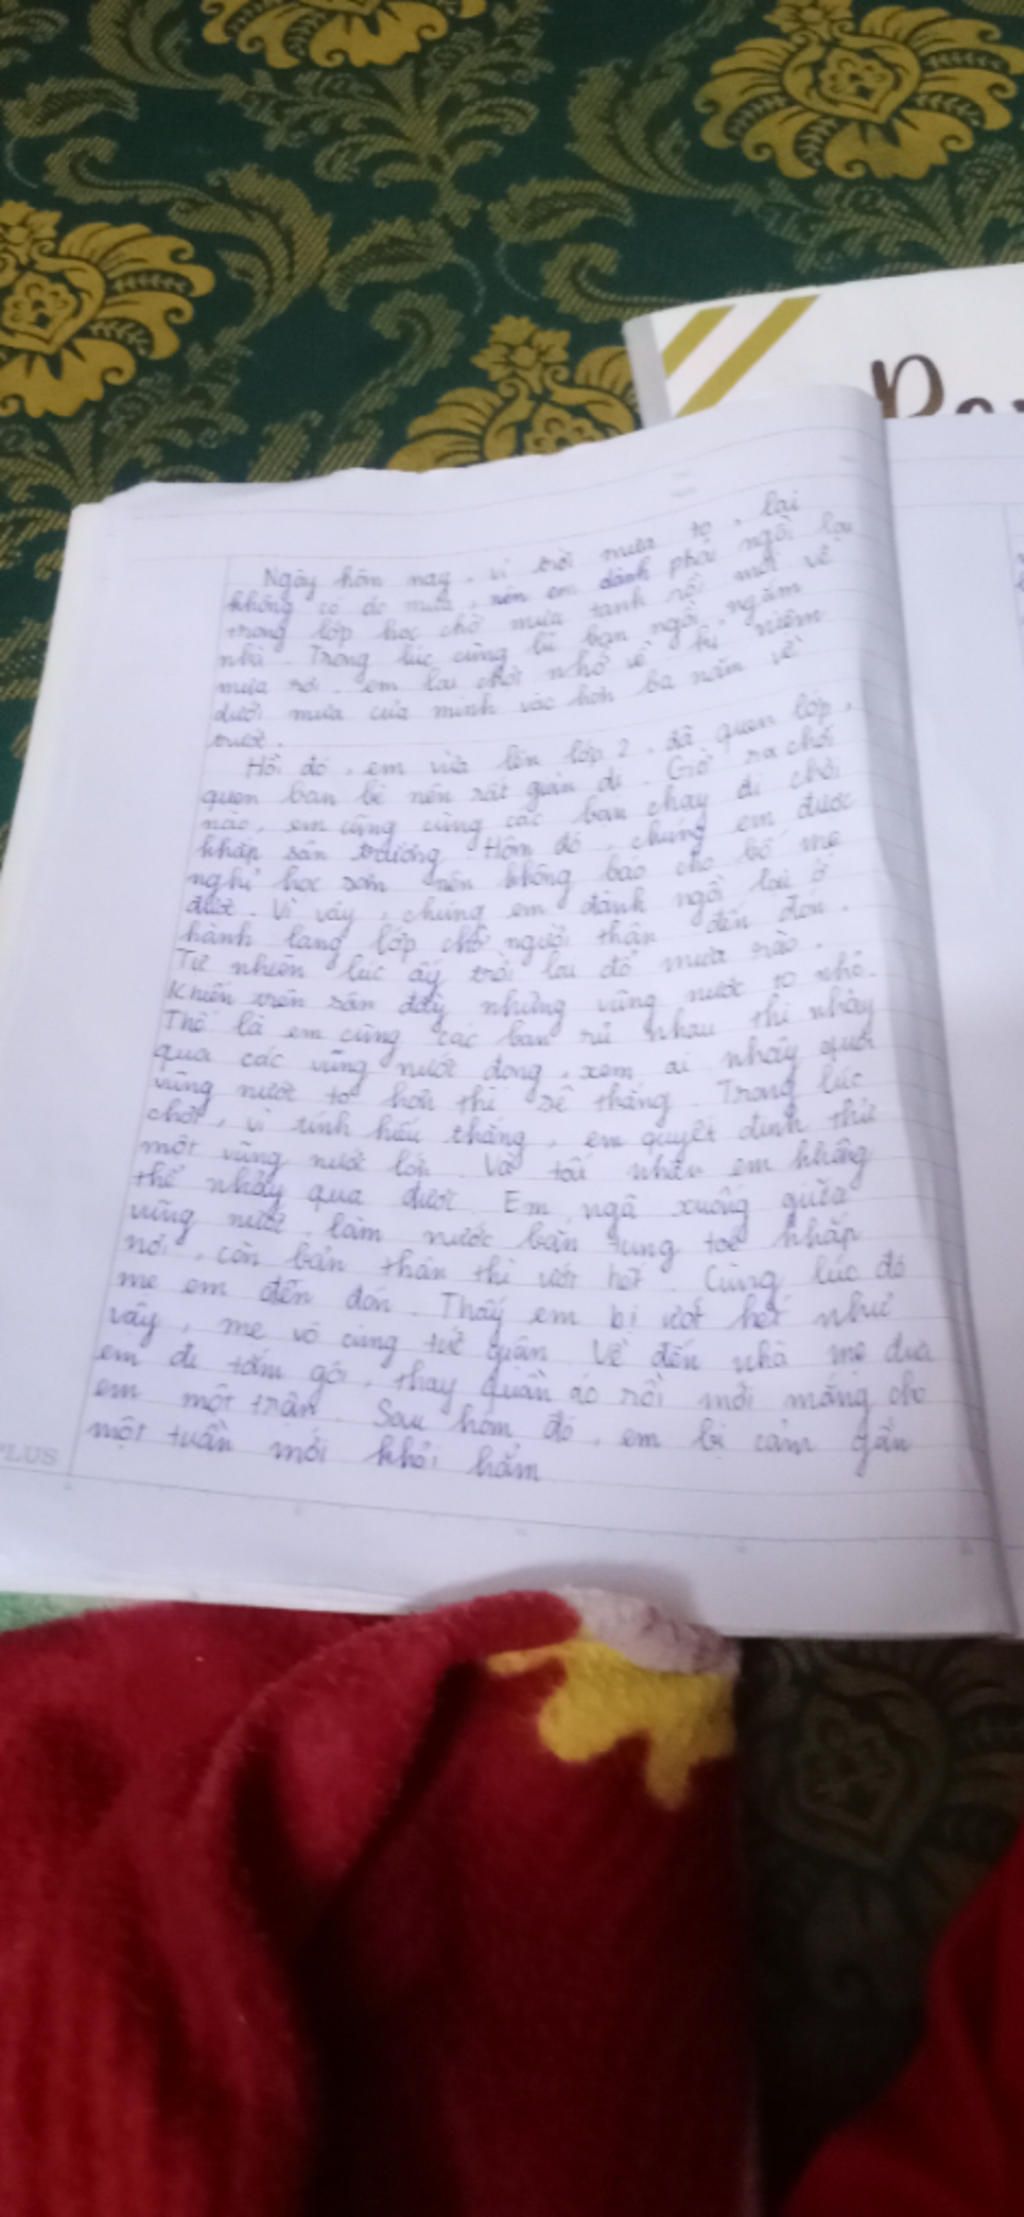 Ngày hôm nay, vì trời mưa to, lại
không có áo mưa, nên em đành phải ngồi lại
trong lớp học chờ mưa tạnh rồi mới về
nhà. Trong lúc cùng lũ bạn ngồi, ngắm
mưa rơi, em lại chợt nhớ về kỉ niệm
dưới mưa của mình vào hơn ba năm về
trước.
Hồi đó, em vừa lên lớp 2, đã quen lớp,
quen bạn bè nên rất giản dị. Giờ ra chơi
nào, em cũng cùng các bạn chạy đi chơi
khắp sân trường. Hôm đó, chúng em được
nghỉ học sớm nên không báo cho bố mẹ
được. Vì vậy, chúng em đành ngồi lại ở
hành lang lớp chờ người thân đến đón.
Tự nhiên lúc ấy trời lại đổ mưa rào.
Khiến trên sân đầy những vũng nước to nhỏ.
Thế là em cùng các bạn rủ nhau thi nhảy
qua các vũng nước đọng, xem ai nhảy qua
vũng nước to hơn thì sẽ thắng. Trong lúc
chơi, vì tính hiếu thắng, em quyết định thử
một vũng nước lớn. Và tất nhiên em không
thể nhảy qua được. Em ngã xuống giữa
vũng nước, làm nước bắn tung toé khắp
nơi, còn bản thân thì ướt hết. Cùng lúc đó
mẹ em đến đón. Thấy em bị ướt hết như
vậy, mẹ vô cùng tức giận. Về đến nhà mẹ đưa
em đi tắm gội, thay quần áo rồi mới mắng cho
em một trận. Sau hôm đó, em bị cảm gần
một tuần mới khỏi hẳn
PLUS